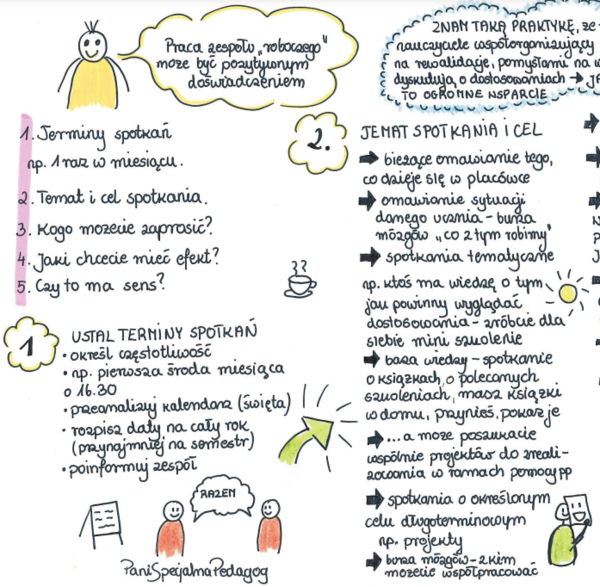 Praca zespołu „roboczego"
może być pozytywnym
doświadczeniem
ZNAM TAKĄ PRAKTYKĘ, że
nauczyciele współorganizujący
na rewalidację, pomysłami na
dyskutują o dostosowaniach → JA
TO OGROMNE WSPARCIE
1. Terminy spotkań
np. 1 raz w miesiącu.
2. Temat i cel spotkania.
3. Kogo możecie zaprosić?
4. Jaki chcecie mieć efekt?
5. Czy to ma sens?
1 USTAL TERMINY SPOTKAŃ
• określ częstotliwość
• np. pierwsza środa miesiąca
o 16.30
• przeanalizuj kalendarz (święta)
• rozpisz daty na cały rok
(przynajmniej na semestr)
• poinformuj zespół
RAZEM
PaniSpecjalnaPedagog
2. TEMAT SPOTKANIA I CEL
➡ bieżące omawianie tego,
co dzieje się w placówce
➡ omawianie sytuacji
danego ucznia - burza
mózgów „co z tym robimy"
➡ spotkania tematyczne
np. ktoś ma wiedzę o tym
jak powinny wyglądać
dostosowania - zróbcie dla
siebie mini szkolenie
➡ baza wiedzy - spotkanie
o książkach, o poleconych
szkoleniach, masz książki
w domu, przynieś, pokaż je
➡ ...a może poszukacie
wspólnie projektów do zreali-
zowania w ramach pomocy pp
➡ spotkania o określonym
celu długoterminowym
np. projekty
➡ burza mózgów - z kim
możecie współpracować